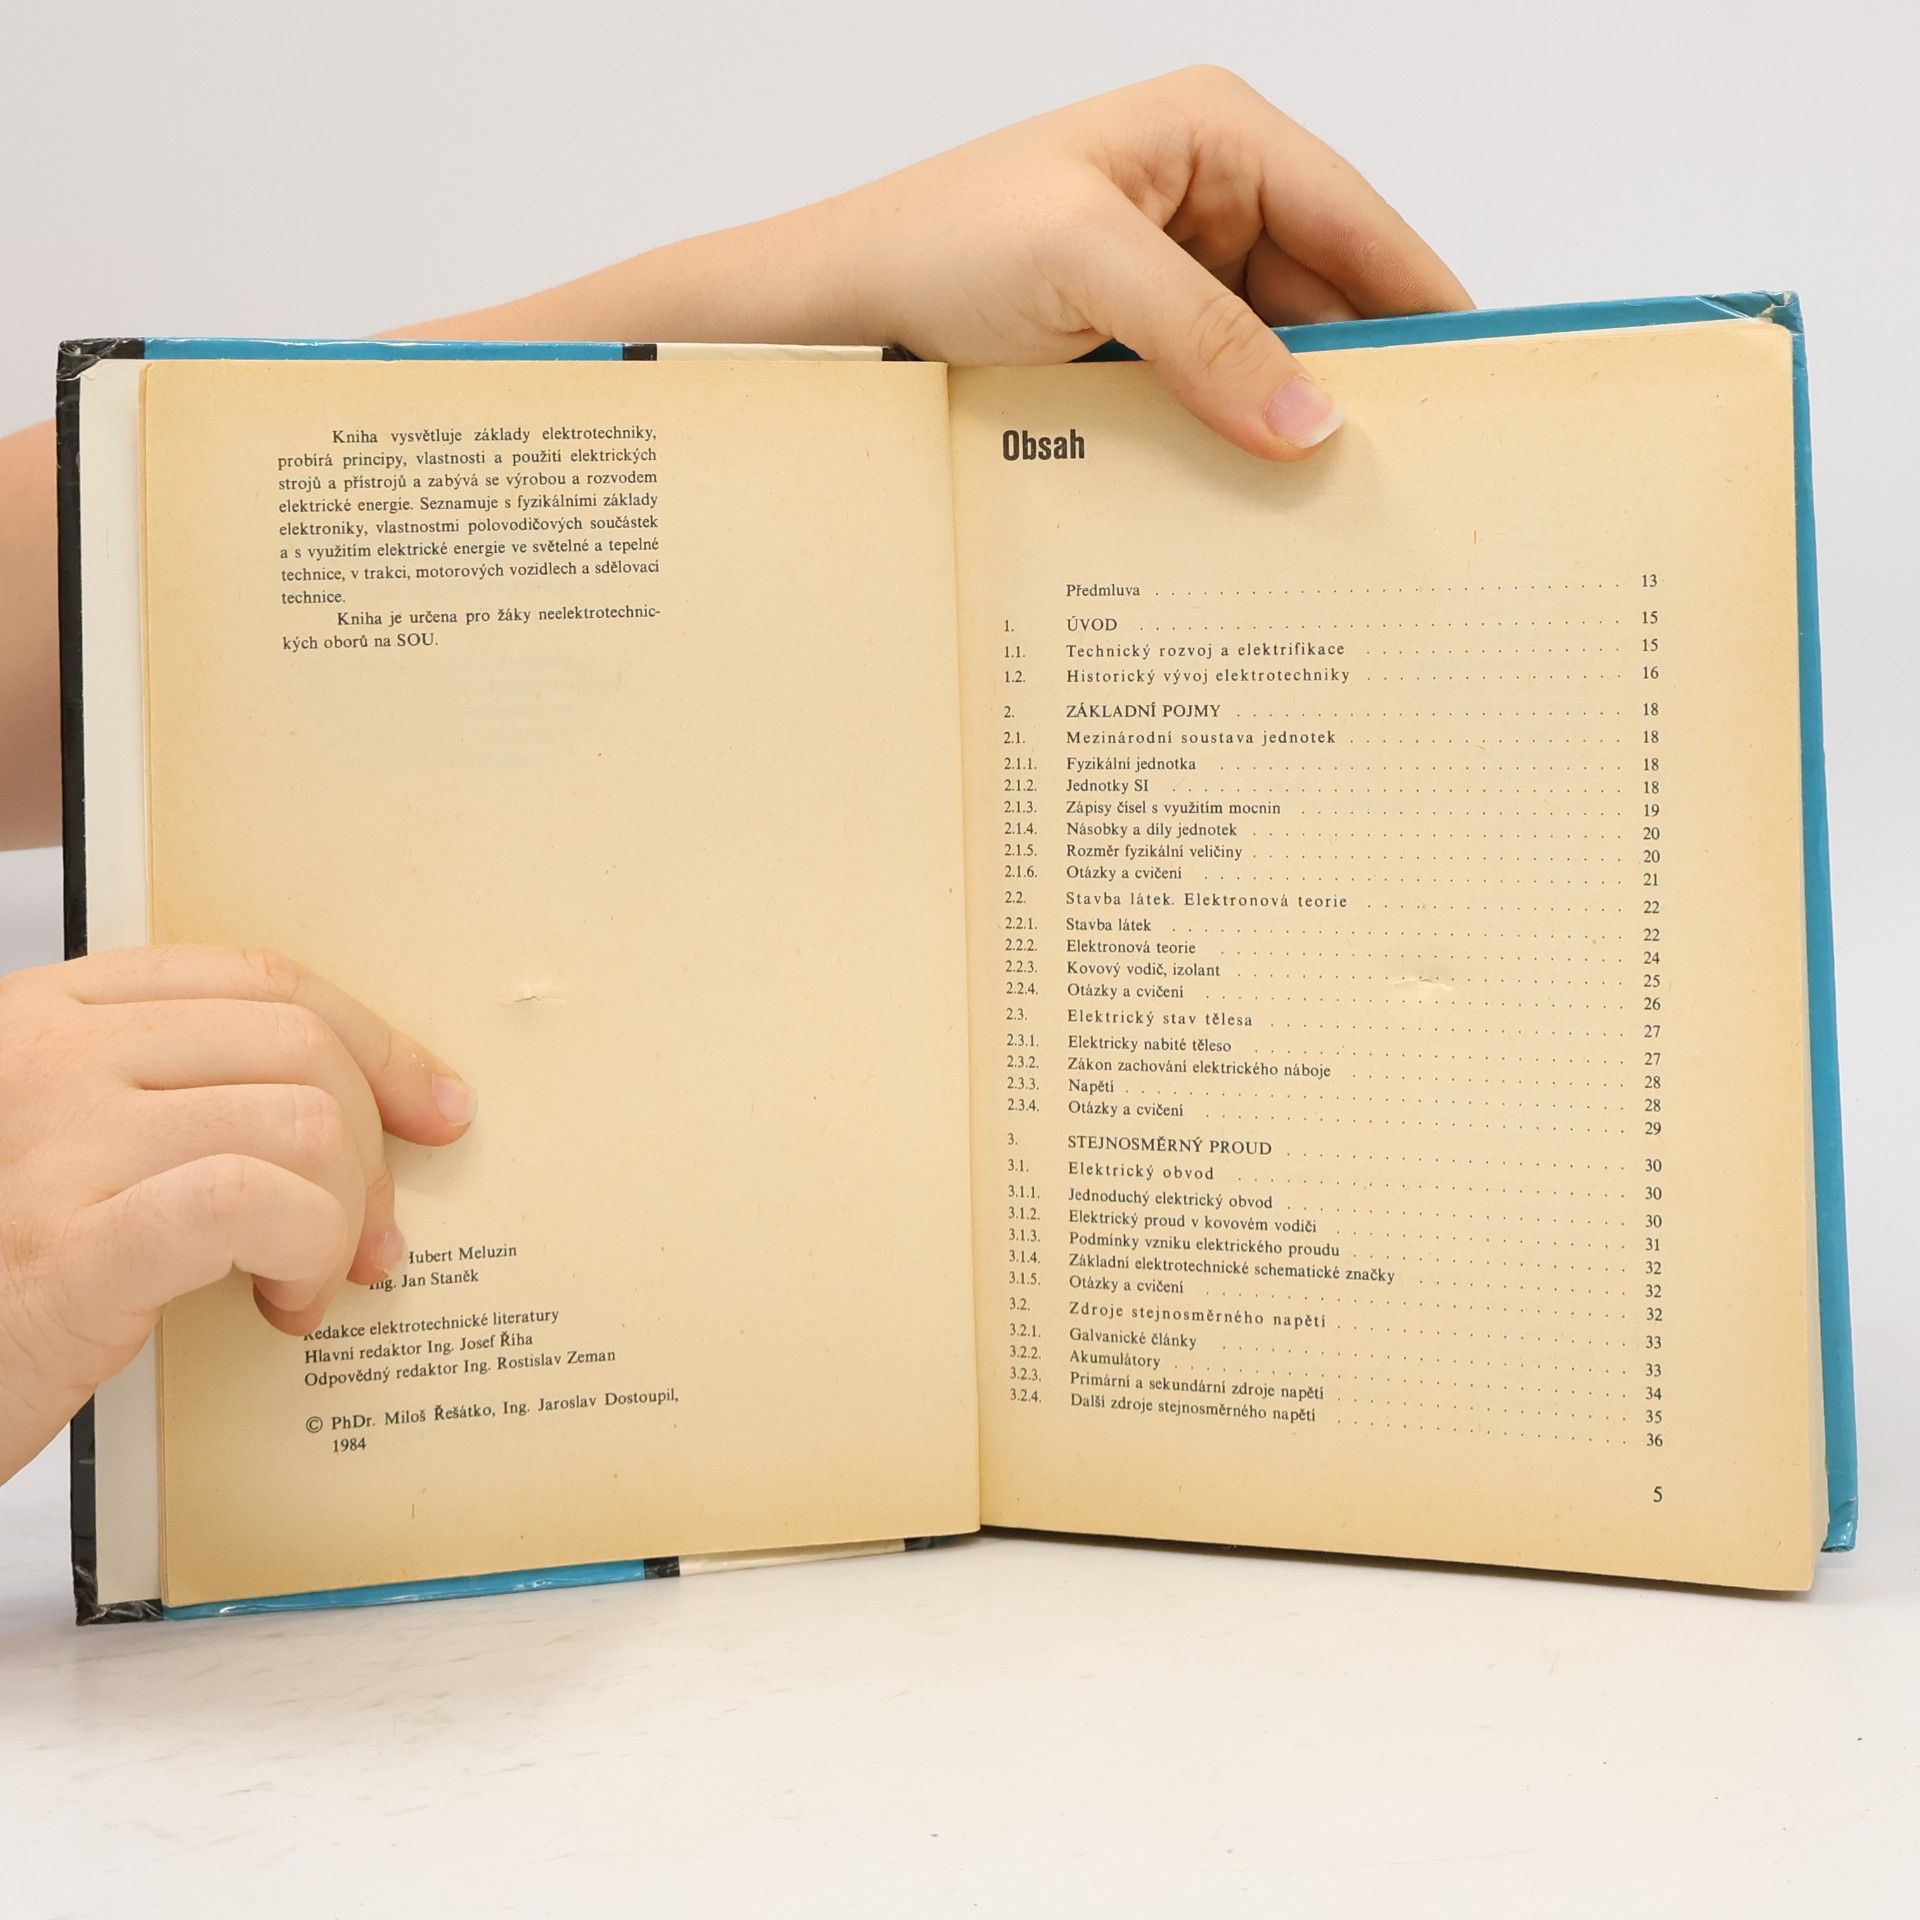 Kniha vysvětluje základy elektrotechniky,
probírá principy, vlastnosti a použití elektrických
strojů a přístrojů a zabývá se výrobou a rozvodem
elektrické energie. Seznamuje s fyzikálními základy
elektroniky, vlastnostmi polovodičových součástek
a s využitím elektrické energie ve světelné a tepelné
technice, v trakci, motorových vozidlech a sdělovací
technice.
Kniha je určena pro žáky neelektrotechnic-
kých oborů na SOU.
Meluzin
Jan Staněk
Redakce elektrotechnické literatury
Hlavní redaktor Ing. Josef Říha
Odpovědný redaktor Ing. Rostislav Zeman
© PhDr. Miloš Řešátko, Ing. Jaroslav Dostoupil,
1984
Obsah
Předmluva . . . . . . . . . . 13
1. ÚVOD . . . . . . . . . . 15
1.1. Technický rozvoj a elektrifikace . . . . . . . . . . 15
1.2. Historický vývoj elektrotechniky . . . . . . . . . . 16
2. ZÁKLADNÍ POJMY . . . . . . . . . . 18
2.1. Mezinárodní soustava jednotek . . . . . . . . . . 18
2.1.1. Fyzikální jednotka . . . . . . . . . . 18
2.1.2. Jednotky SI . . . . . . . . . . 18
2.1.3. Zápisy čísel s využitím mocnin . . . . . . . . . . 19
2.1.4. Násobky a díly jednotek . . . . . . . . . . 20
2.1.5. Rozměr fyzikální veličiny . . . . . . . . . . 20
2.1.6. Otázky a cvičení . . . . . . . . . . 21
2.2. Stavba látek. Elektronová teorie . . . . . . . . . . 22
2.2.1. Stavba látek . . . . . . . . . . 22
2.2.2. Elektronová teorie . . . . . . . . . . 24
2.2.3. Kovový vodič, izolant . . . . . . . . . . 25
2.2.4. Otázky a cvičení . . . . . . . . . . 26
2.3. Elektrický stav tělesa . . . . . . . . . . 27
2.3.1. Elektricky nabité těleso . . . . . . . . . . 27
2.3.2. Zákon zachování elektrického náboje . . . . . . . . . . 28
2.3.3. Napětí . . . . . . . . . . 28
2.3.4. Otázky a cvičení . . . . . . . . . . 29
3. STEJNOSMĚRNÝ PROUD . . . . . . . . . . 30
3.1. Elektrický obvod . . . . . . . . . . 30
3.1.1. Jednoduchý elektrický obvod . . . . . . . . . . 30
3.1.2. Elektrický proud v kovovém vodiči . . . . . . . . . . 31
3.1.3. Podmínky vzniku elektrického proudu . . . . . . . . . . 32
3.1.4. Základní elektrotechnické schematické značky . . . . . . . . . . 32
3.1.5. Otázky a cvičení . . . . . . . . . . 32
3.2. Zdroje stejnosměrného napětí . . . . . . . . . . 33
3.2.1. Galvanické články . . . . . . . . . . 33
3.2.2. Akumulátory . . . . . . . . . . 34
3.2.3. Primární a sekundární zdroje napětí . . . . . . . . . . 35
3.2.4. Další zdroje stejnosměrného napětí . . . . . . . . . . 36
5